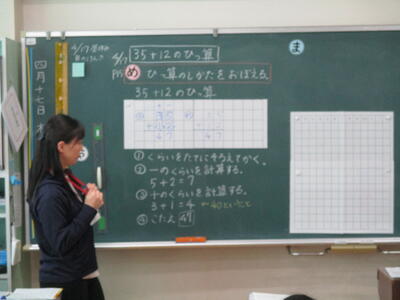 四月十七日
4/17
35+12のひっ算
ま
P15 め ひっ算のしかたをおぼえる。
35+12のひっ算
① くらいをたてにそろえてかく。
② 一のくらいを計算する。
5+2=7
③ 十のくらいを計算する。
3+1=4
④ こたえ 47